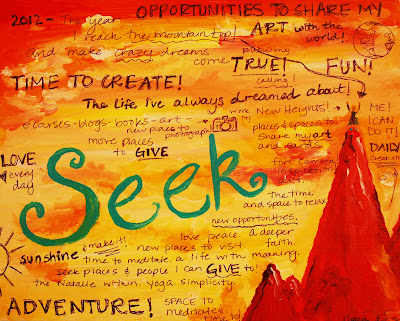 OPPORTUNITIES TO SHARE MY
2012- The year
I reach the mountain top!
ART with the world!
and make crazy dreams
come TRUE!
following my calling
FUN!
TIME TO CREATE!
The Life I've always dreamed about!
ecourses-blogs-books-art-
new places to photograph
more places
to GIVE
New Heights!
places & spaces to
share my art
and ideas
fun camera
inspiration
ME!
I CAN DO IT!
DAILY
LOVE
every
day
Seek
the time
and space to relax
new opportunities.
love peace a deeper
faith.
sunshine
& make it!
new places to visit
time to meditate. a life with meaning.
seek places & people I can GIVE to!
the Natalie within. yoga simplicity.
ADVENTURE!
SPACE TO
meditate
time to